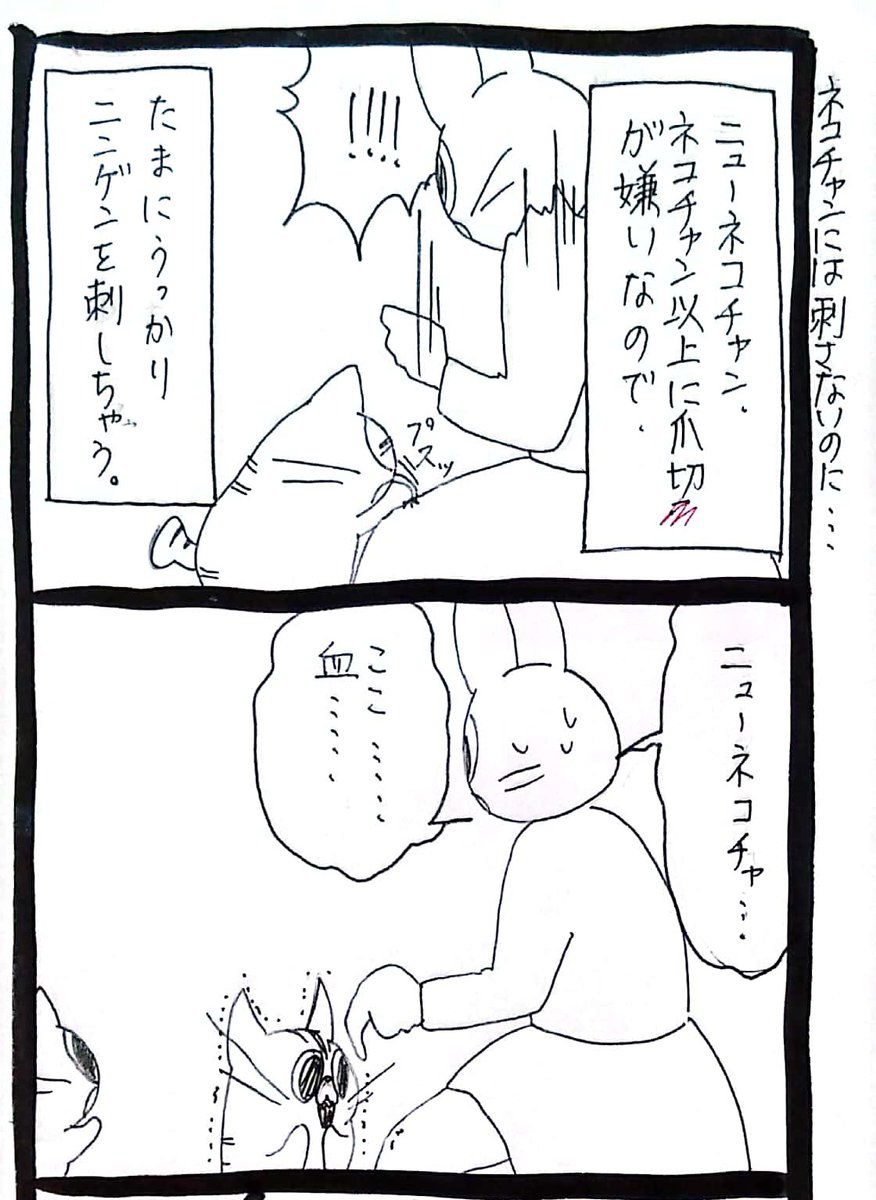 ネコチャンには刺さないのに…
ニューネコチャン、
ネコチャン以上に爪切り
が嫌いなので、
!!!!
プスッ
たまにうっかり
ニンゲンを刺しちゃう。
ニューネコチャ…
ここ……
血……